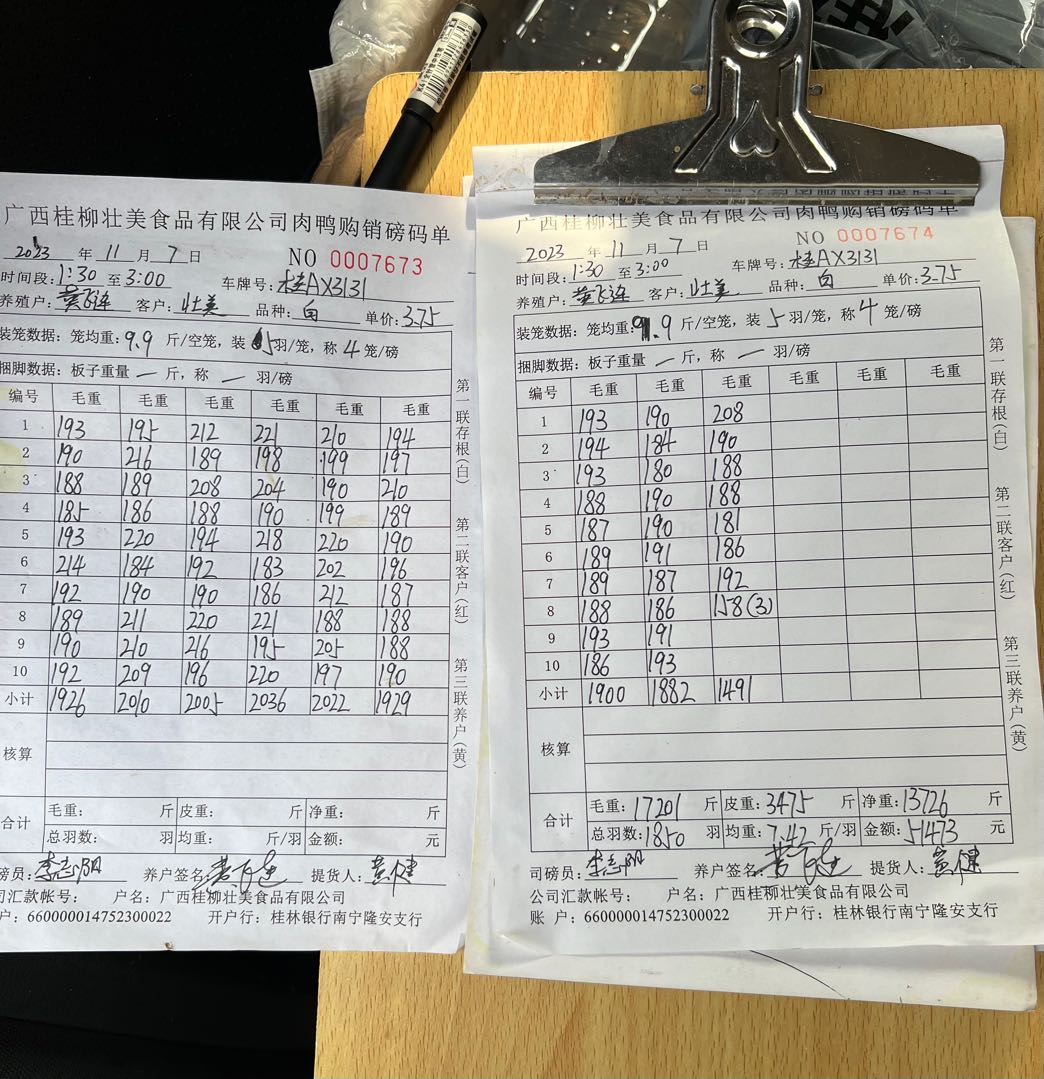 广西桂柳壮美食品有限公司肉鸭购销磅码单
2023 年 11 月 7 日 NO 0007673
时间段:1:30 至 3:00 车牌号:桂AX3131
养殖户:黄飞连 客户:壮美 品种:白 单价:3.75
装笼数据:笼均重:9.9 斤/空笼,装 5 羽/笼,称 4 笼/磅
捆脚数据:板子重量 一 斤,称 一 羽/磅
编号 毛重 毛重 毛重 毛重 毛重 毛重
1 193 195 212 221 210 194
2 190 216 189 198 199 197
3 188 189 208 204 190 210
4 185 186 188 190 199 189
5 193 220 194 218 220 190
6 214 184 192 183 202 196
7 192 190 190 186 212 187
8 189 211 220 221 188 188
9 190 210 216 195 205 188
10 192 209 196 220 197 190
小计 1926 2010 2005 2036 2022 1929
核算
合计 毛重: 斤 皮重: 斤 净重: 斤
总羽数: 羽 均重: 斤/羽 金额: 元
磅员:李志阳 养户签名: 提货人:黄健
司汇款帐号: 户名:广西桂柳壮美食品有限公司
户:660000014752300022 开户行:桂林银行南宁隆安支行
第一联存根(白) 第二联客户(红) 第三联养户(黄)
广西桂柳壮美食品有限公司肉鸭购销磅码单
2023 年 11 月 7 日 NO 0007674
时间段:1:30 至 3:00 车牌号:桂AX3131
养殖户:黄飞连 客户:壮美 品种:白 单价:3.75
装笼数据:笼均重:9.9 斤/空笼,装 5 羽/笼,称 4 笼/磅
捆脚数据:板子重量 一 斤,称 一 羽/磅
编号 毛重 毛重 毛重 毛重 毛重 毛重
1 193 190 208
2 194 184 190
3 193 180 188
4 188 190 188
5 187 190 181
6 189 191 186
7 189 187 192
8 188 186 158(3)
9 193 191
10 186 193
小计 1900 1882 1491
核算
合计 毛重:17201 斤 皮重:3475 斤 净重:13726 斤
总羽数:1850 羽 均重:7.42 斤/羽 金额:51473 元
司磅员:李志阳 养户签名: 提货人:黄健
公司汇款帐号: 户名:广西桂柳壮美食品有限公司
账 户:660000014752300022 开户行:桂林银行南宁隆安支行
第一联存根(白) 第二联客户(红) 第三联养户(黄)